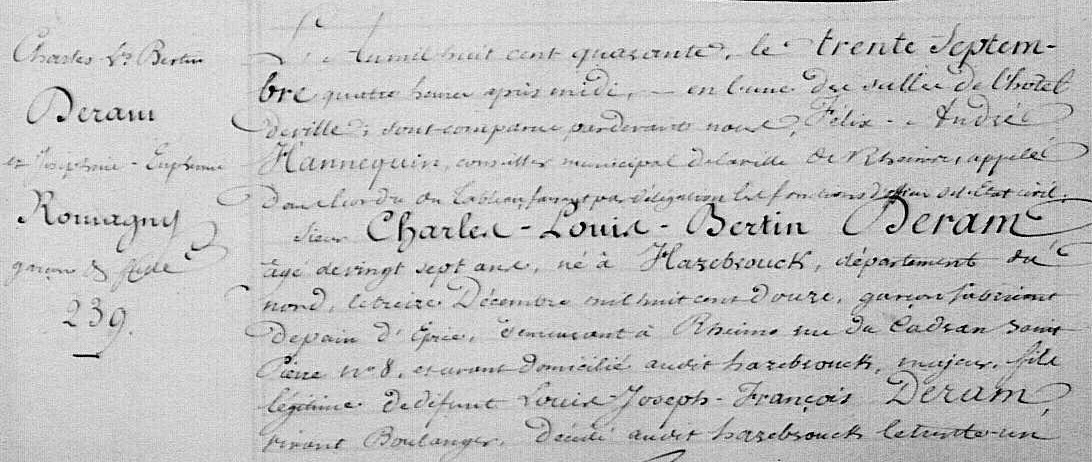 Charles Ls Bertin
Deram
et Josephine - Euphemie
Romagny
garçon & fille
239.
L'an mil huit cent quarante, le trente Septem-
bre quatre heures après midi, — en l'une des salles de l'hôtel
deville, sont comparus pardevant nous, Félix - André
Hannequin, conseiller municipal de la ville de Rheims, appelé
dans l'ordre du tableau faisant par délégation les fonctions d'officier de l'Etat civil.
sieur Charles - Louis - Bertin Deram
âgé de vingt sept ans, né à Hazebrouck, département du
nord, le treize Décembre mil huit cent douze, garçon fabricant
depain d'Epice, demeurant à Rheims rue du Cadran Saint
Pierre n° 8, et avant domicilié audit hazebrouck, majeur, fils
légitime de défunt Louis - Joseph - François Deram,
vivant Boulanger, décédé audit hazebrouck le trente-un